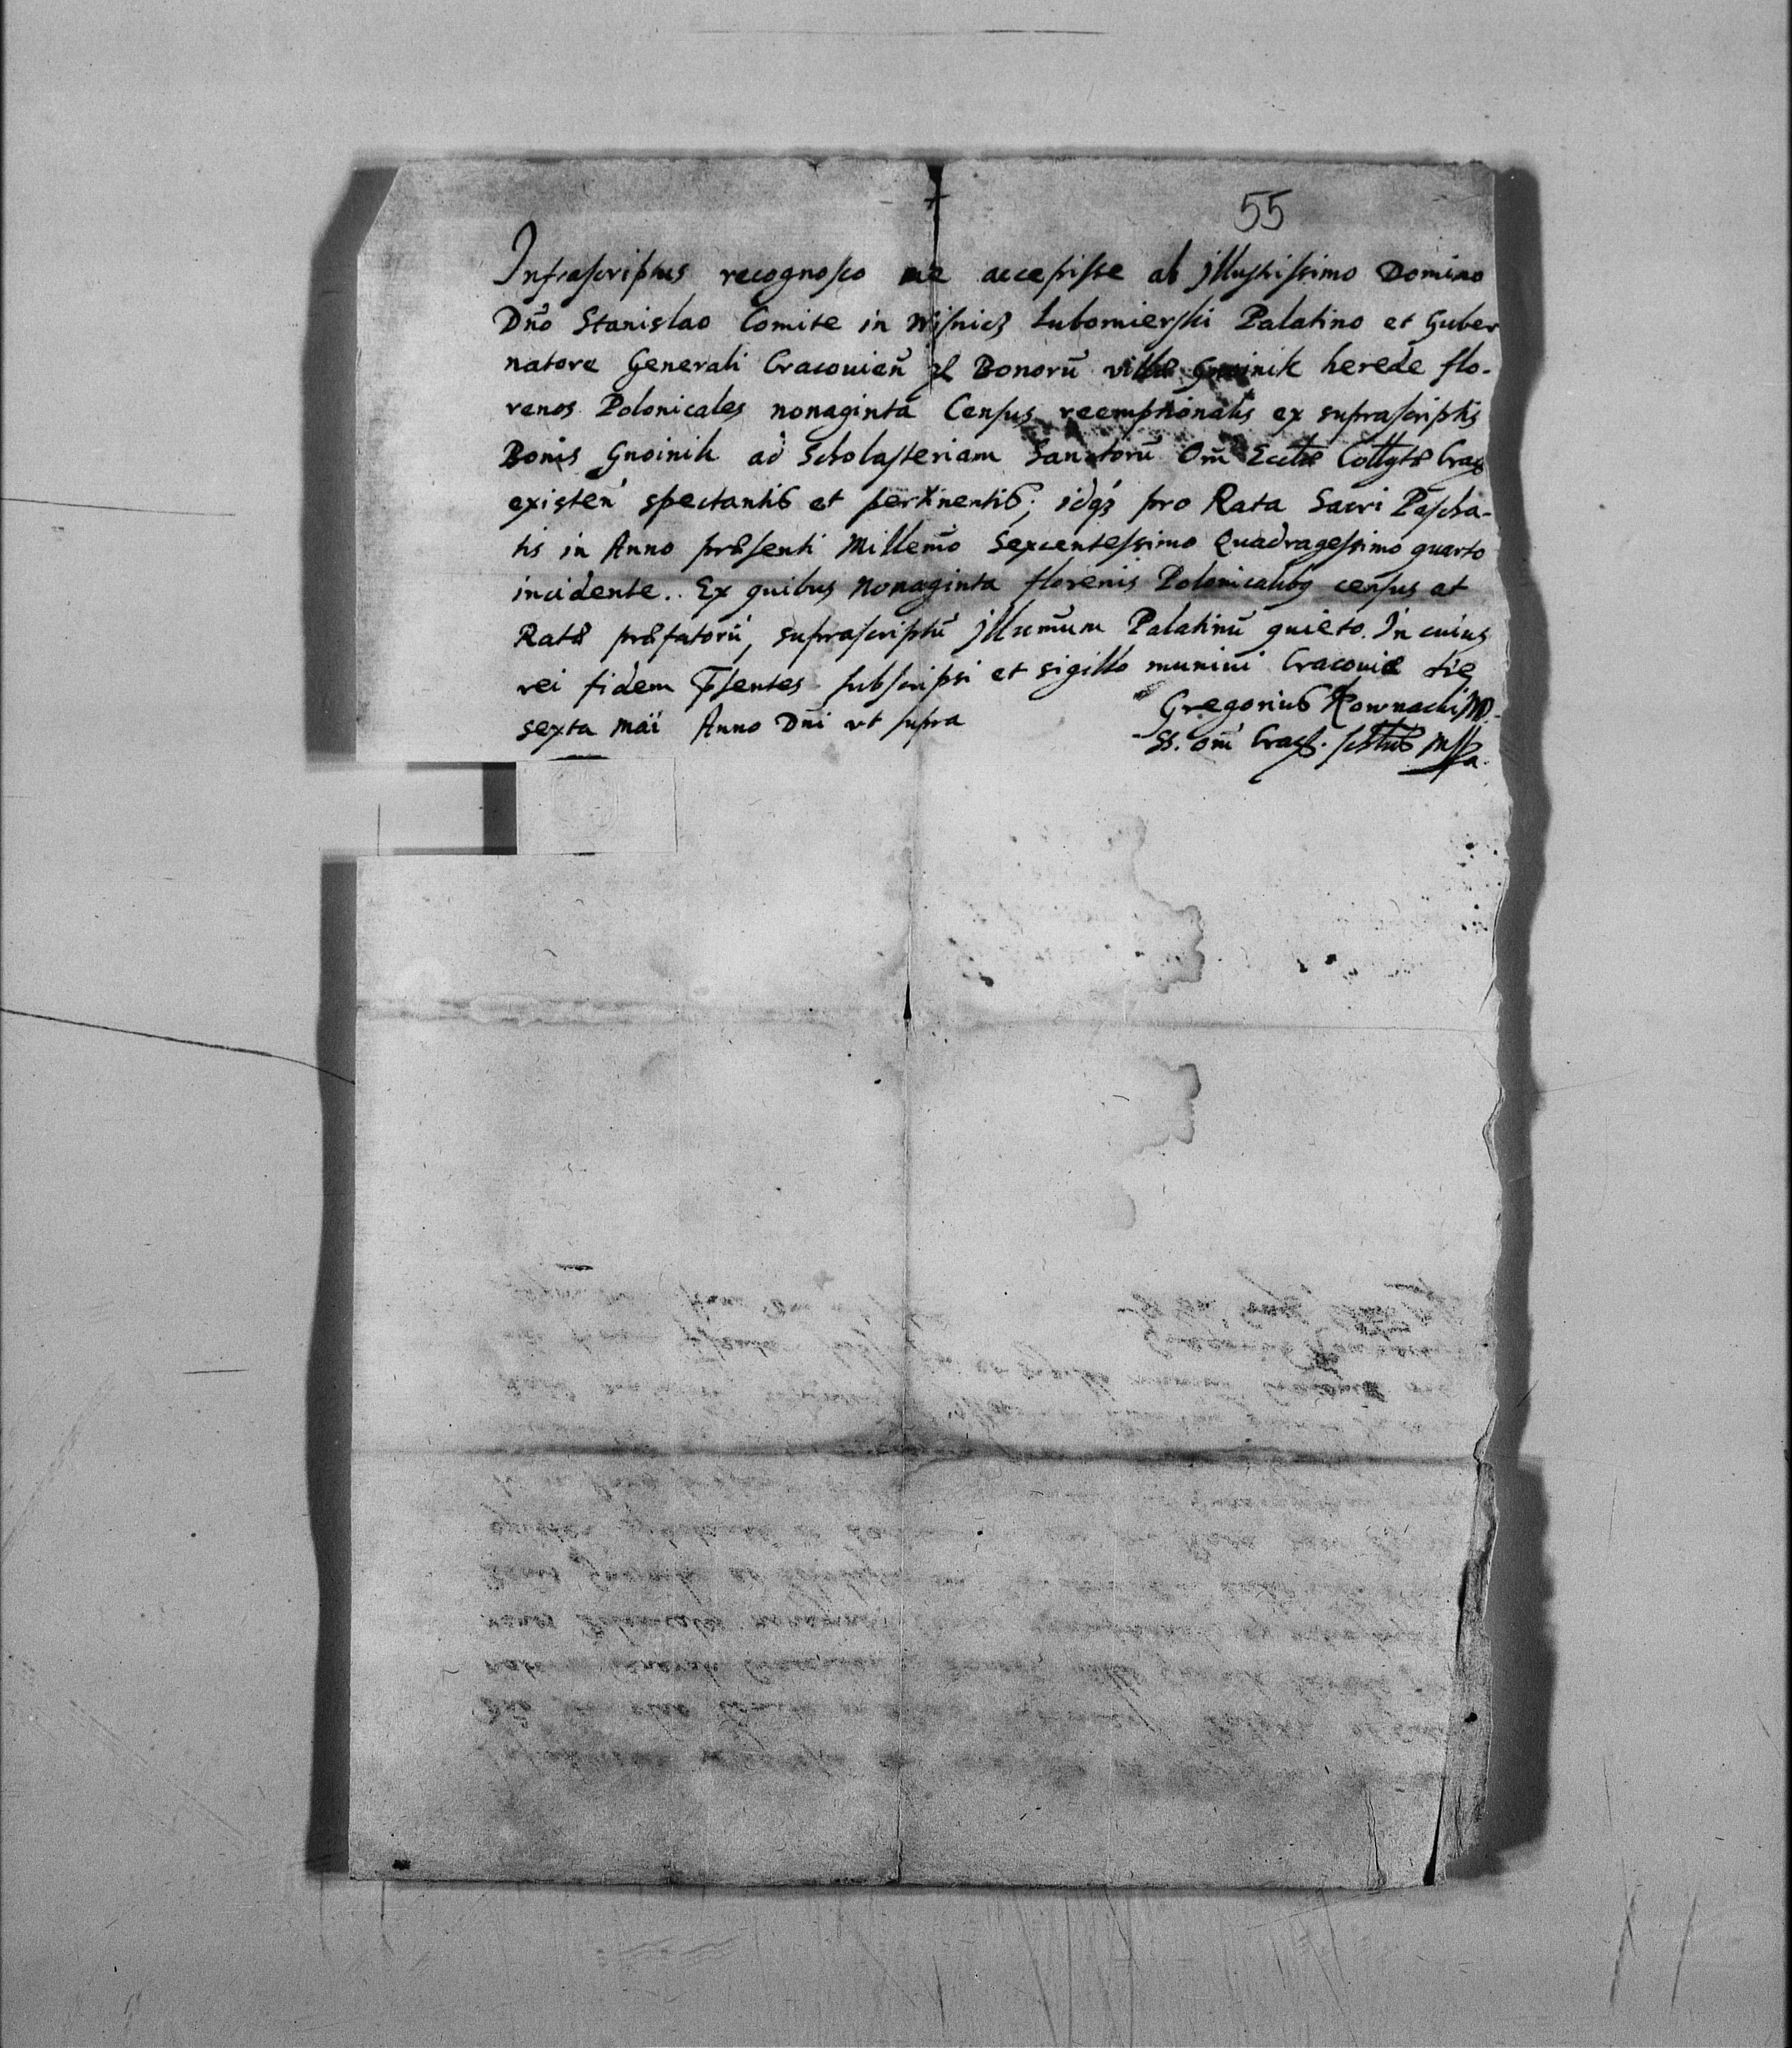 55
Infrascriptus recognosco me accepisse ab Jllustrissimo Domino
Dnō Stanislao Comite in Wisnicz Lubomierski Palatino et Guber
natore Generali Cracouien̄ Bonorū villæ Gnoinik herede flo-
renos Polonicales nonaginta Census reemptionalis ex suprascriptis
Bonis Gnoinik ad Scholasteriam Sanctorū Om̄ Ecclæ Collgtæ Crac
existen̄ spectantis et pertinentis; idqȝ pro Rata Sacri Pascha-
tis in Anno præsenti Millemo Sexcentessimo Quadragessimo quarto
incidente. Ex quibus Nonaginta florenis Polonicalibq census et
Ratæ præfatorū, suprascriptū Jllumum Palatinū quieto. In cuius
rei fidem p̄sentes subscripsi et sigillo muniui Cracouiæ die
sexta Maÿ Anno Dni vt supra
Gregorius Kownacki
SS. om̄ Crac. mppa